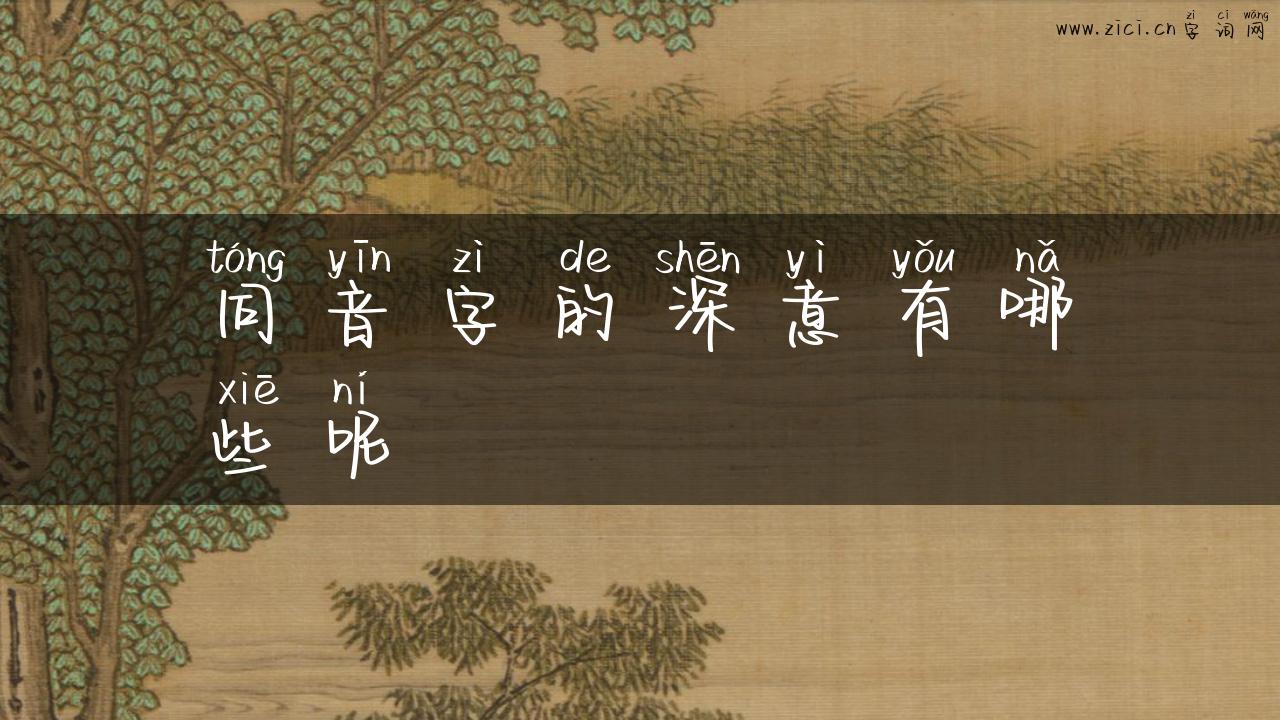 zì cí wǎng
www.zici.cn字词网
tóng yīn zì de shēn yì yǒu nǎ
同音字的深意有哪
xiē ní
些呢